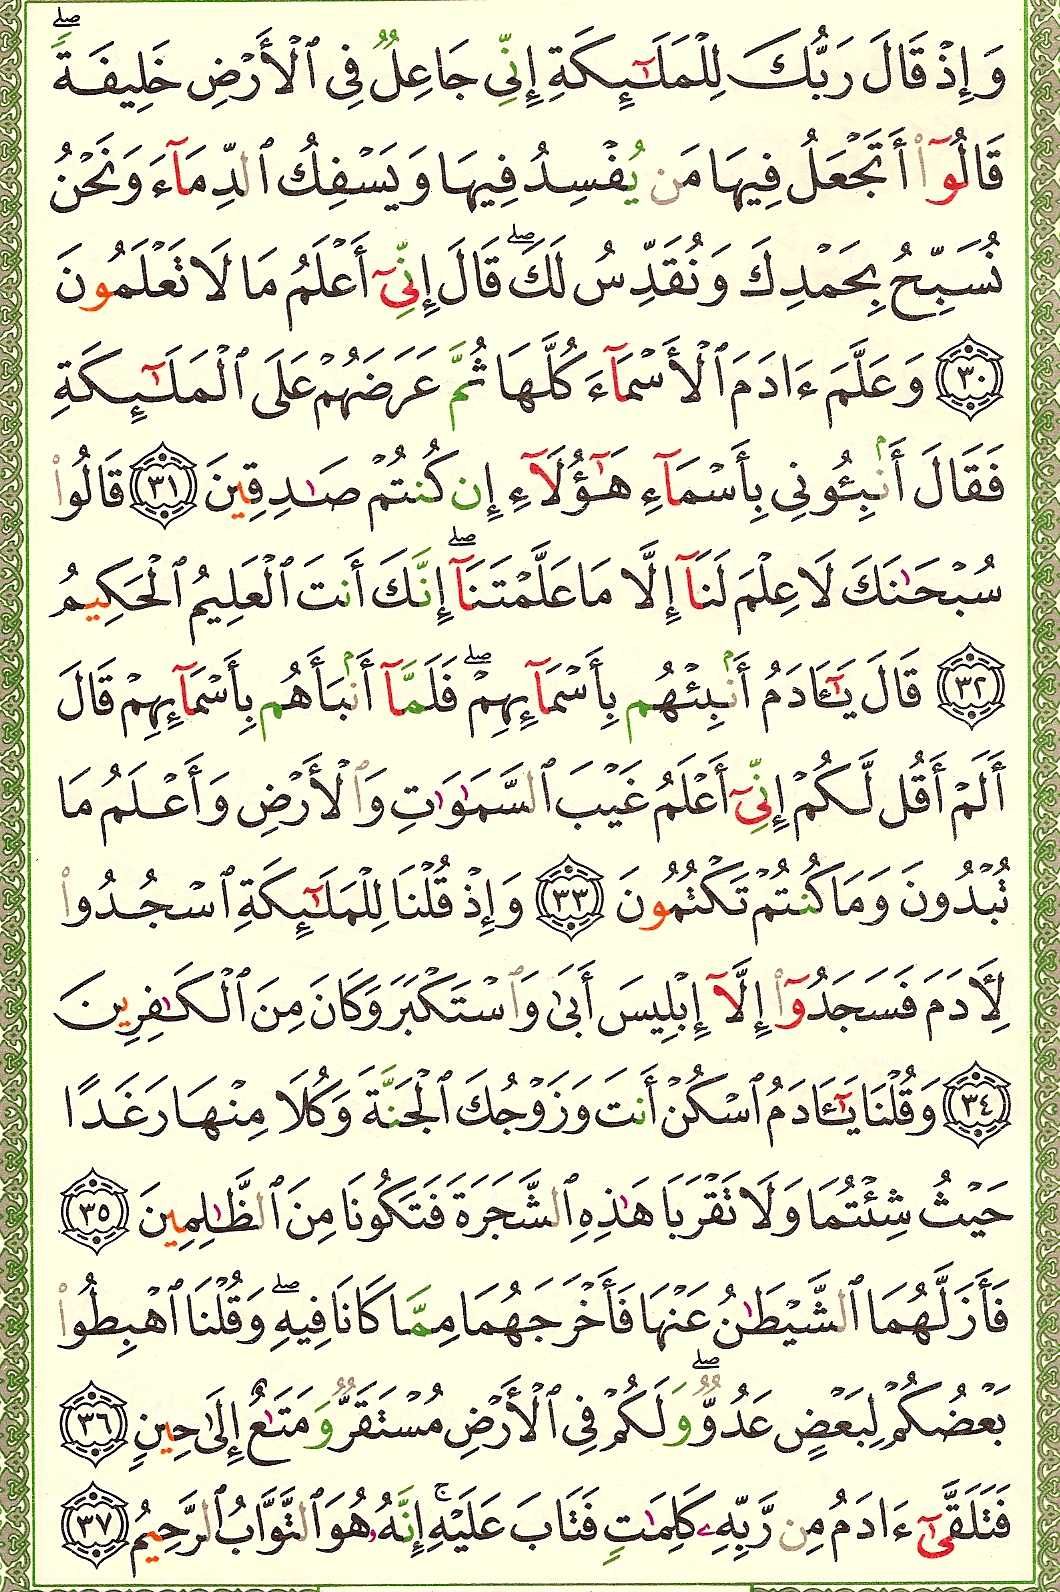 وَإِذْ قَالَ رَبُّكَ لِلْمَلَٰٓئِكَةِ إِنِّى جَاعِلٌ فِى ٱلْأَرْضِ خَلِيفَةً ۖ
قَالُوٓا۟ أَتَجْعَلُ فِيهَا مَن يُفْسِدُ فِيهَا وَيَسْفِكُ ٱلدِّمَآءَ وَنَحْنُ
نُسَبِّحُ بِحَمْدِكَ وَنُقَدِّسُ لَكَ ۖ قَالَ إِنِّىٓ أَعْلَمُ مَا لَا تَعْلَمُونَ
٣٠ وَعَلَّمَ ءَادَمَ ٱلْأَسْمَآءَ كُلَّهَا ثُمَّ عَرَضَهُمْ عَلَى ٱلْمَلَٰٓئِكَةِ
فَقَالَ أَنۢبِـُٔونِى بِأَسْمَآءِ هَٰٓؤُلَآءِ إِن كُنتُمْ صَٰدِقِينَ ٣١ قَالُوا۟
سُبْحَٰنَكَ لَا عِلْمَ لَنَآ إِلَّا مَا عَلَّمْتَنَآ ۖ إِنَّكَ أَنتَ ٱلْعَلِيمُ ٱلْحَكِيمُ
٣٢ قَالَ يَٰٓـَٔادَمُ أَنۢبِئْهُم بِأَسْمَآئِهِمْ ۖ فَلَمَّآ أَنۢبَأَهُم بِأَسْمَآئِهِمْ قَالَ
أَلَمْ أَقُل لَّكُمْ إِنِّىٓ أَعْلَمُ غَيْبَ ٱلسَّمَٰوَٰتِ وَٱلْأَرْضِ وَأَعْلَمُ مَا
تُبْدُونَ وَمَا كُنتُمْ تَكْتُمُونَ ٣٣ وَإِذْ قُلْنَا لِلْمَلَٰٓئِكَةِ ٱسْجُدُوا۟
لِءَادَمَ فَسَجَدُوٓا۟ إِلَّآ إِبْلِيسَ أَبَىٰ وَٱسْتَكْبَرَ وَكَانَ مِنَ ٱلْكَٰفِرِينَ
٣٤ وَقُلْنَا يَٰٓـَٔادَمُ ٱسْكُنْ أَنتَ وَزَوْجُكَ ٱلْجَنَّةَ وَكُلَا مِنْهَا رَغَدًا
حَيْثُ شِئْتُمَا وَلَا تَقْرَبَا هَٰذِهِ ٱلشَّجَرَةَ فَتَكُونَا مِنَ ٱلظَّٰلِمِينَ ٣٥
فَأَزَلَّهُمَا ٱلشَّيْطَٰنُ عَنْهَا فَأَخْرَجَهُمَا مِمَّا كَانَا فِيهِ ۖ وَقُلْنَا ٱهْبِطُوا۟
بَعْضُكُمْ لِبَعْضٍ عَدُوٌّ ۖ وَلَكُمْ فِى ٱلْأَرْضِ مُسْتَقَرٌّ وَمَتَٰعٌ إِلَىٰ حِينٍ ٣٦
فَتَلَقَّىٰٓ ءَادَمُ مِن رَّبِّهِۦ كَلِمَٰتٍ فَتَابَ عَلَيْهِ ۚ إِنَّهُۥ هُوَ ٱلتَّوَّابُ ٱلرَّحِيمُ ٣٧